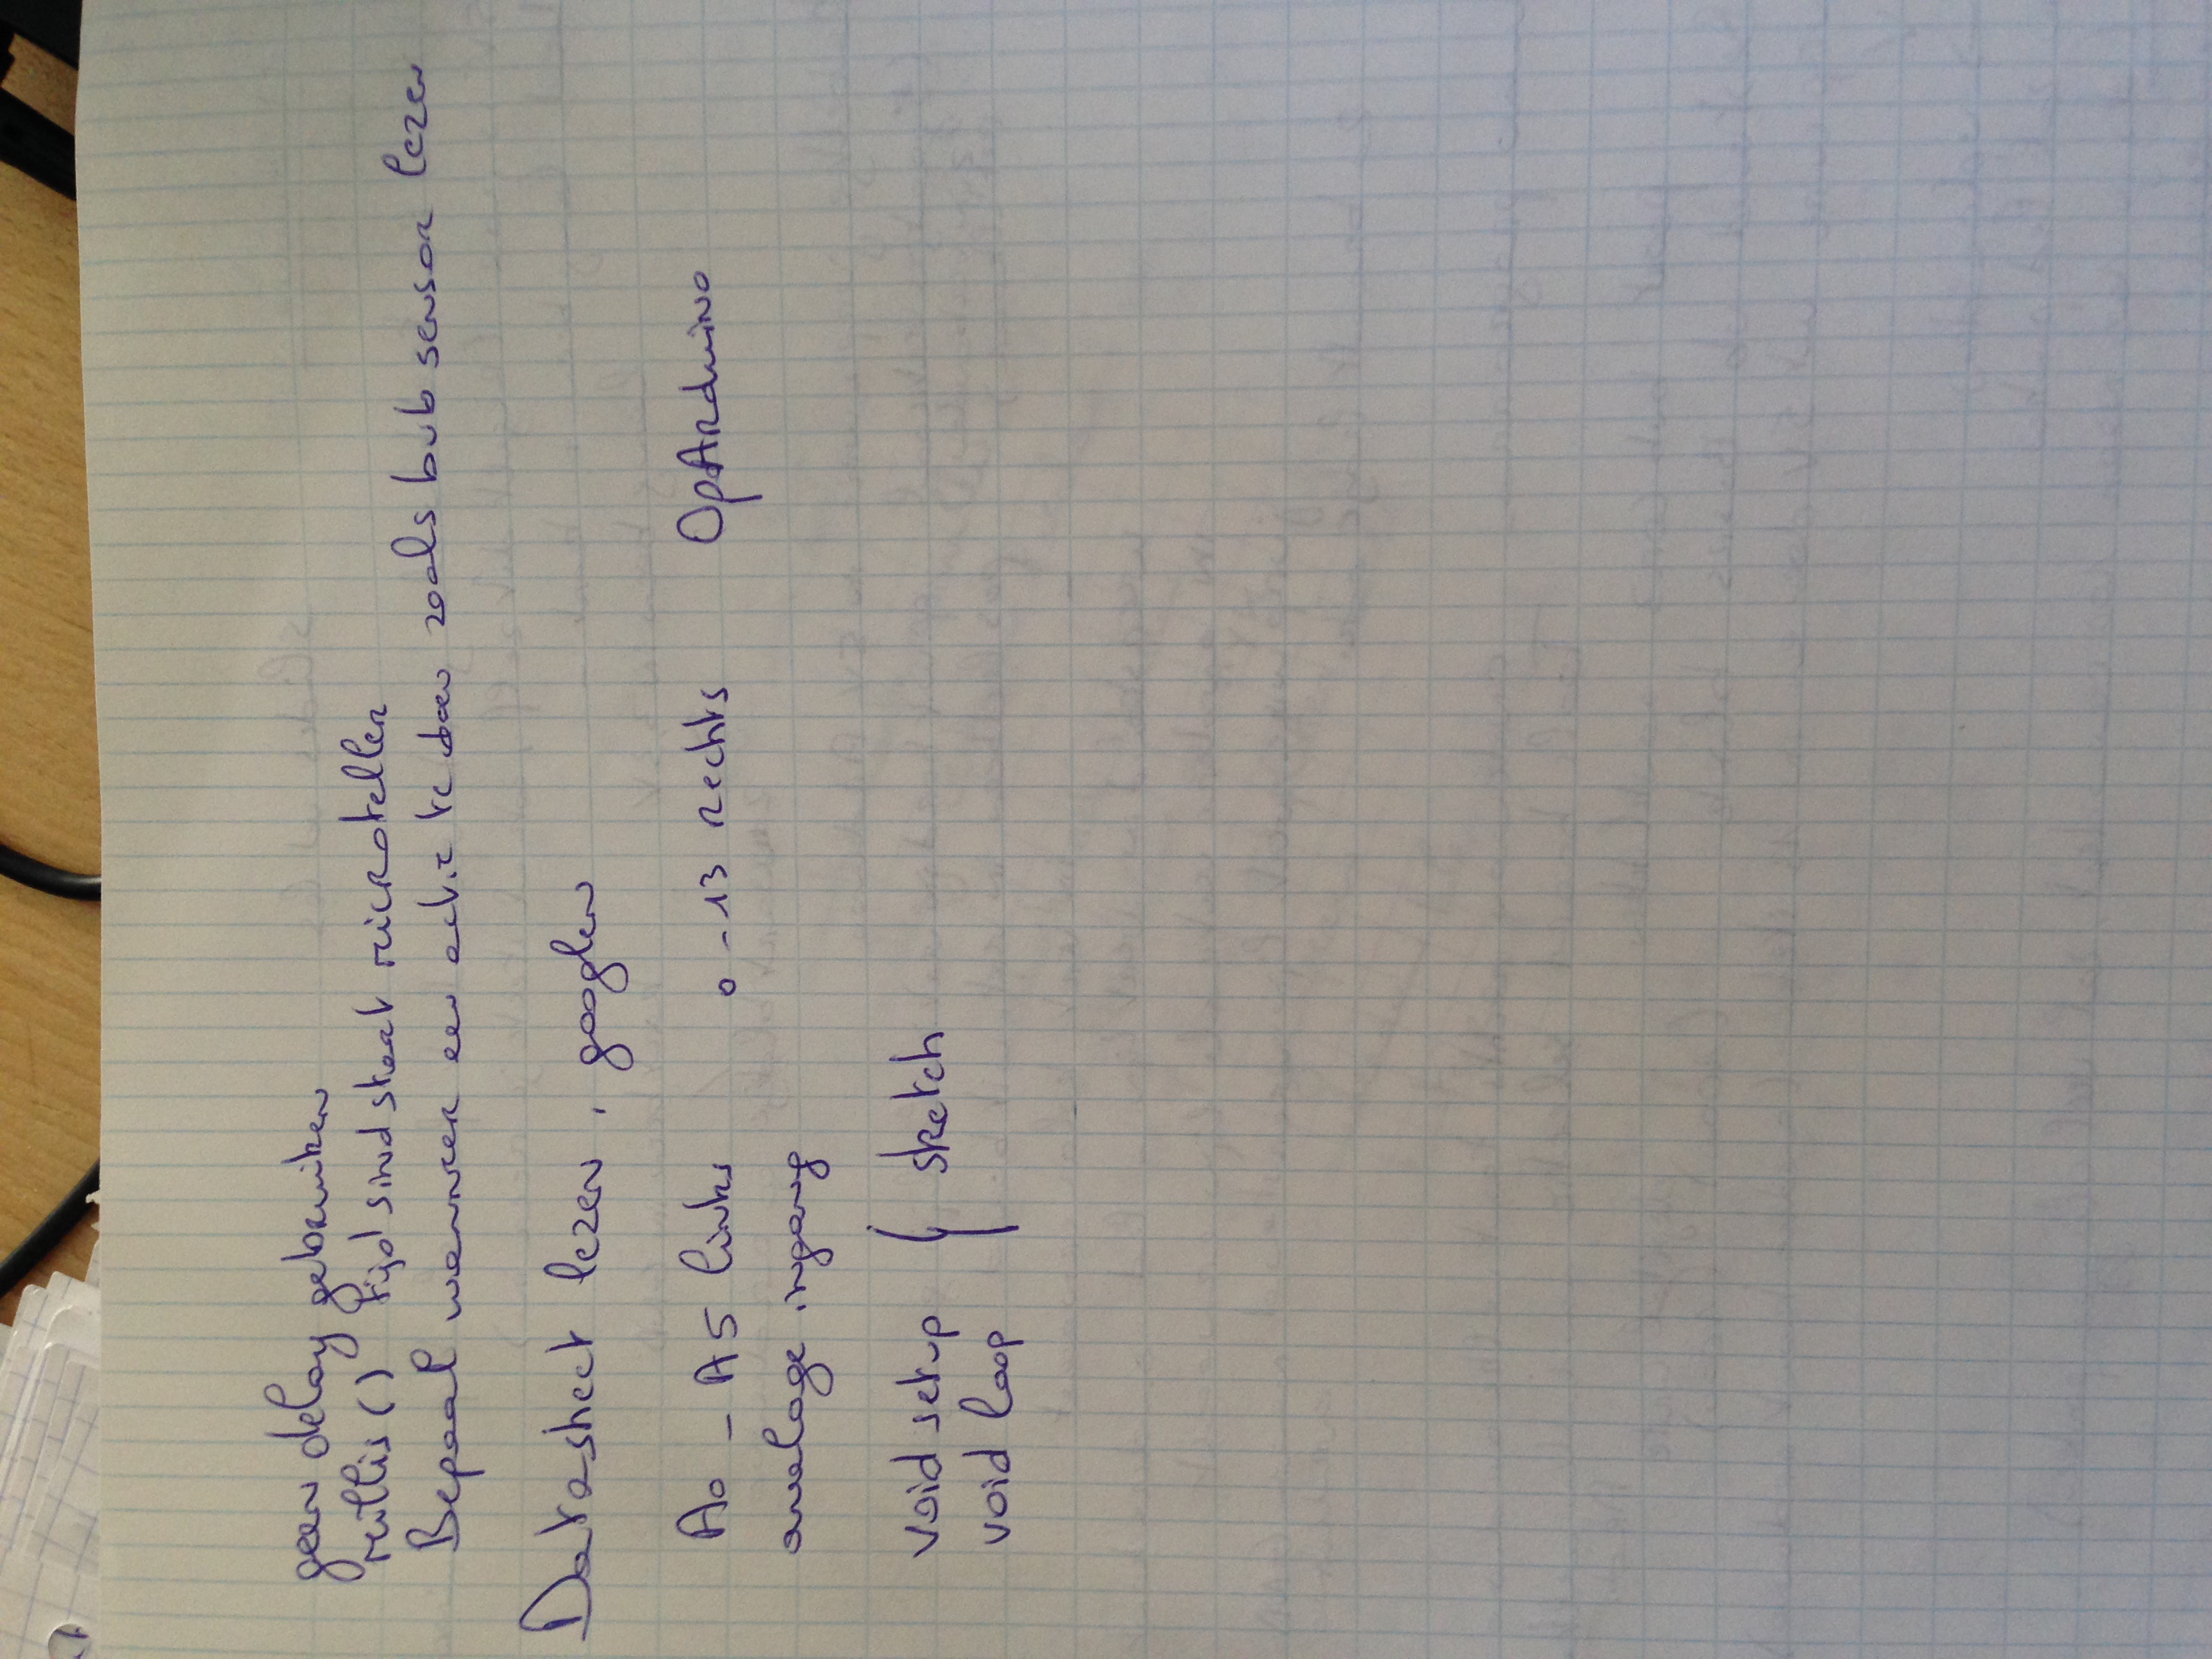 geen delay gebruiken
millis() tijd sind start microteller
Bepaal wanneer een actie te doen zoals bub sensor lezen
Datasheet lezen, googlen
A0 - A5 links 0 - 13 rechts Op Arduino
analoge ingang
void setup } sketch
void loop